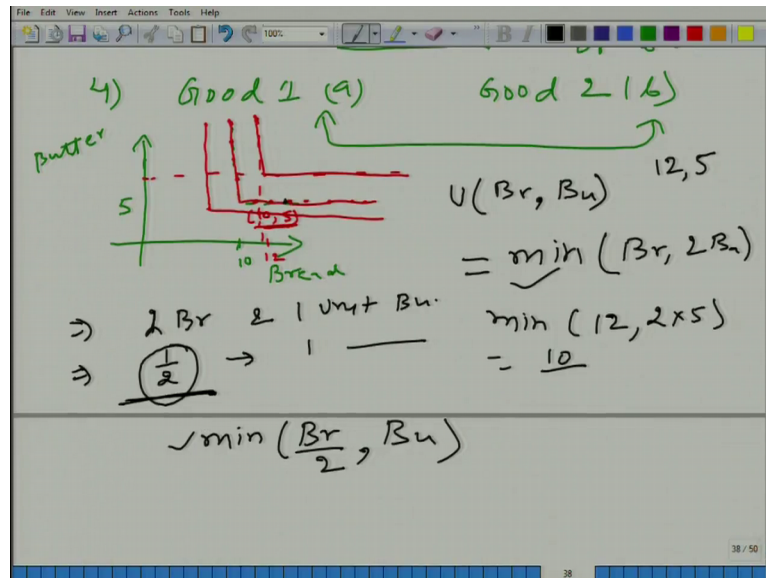 File Edit View Insert Actions Tools Help
100%
4) Good 1 (a) Good 2 (b)
Butter
5
(10, 5)
10 12
Bread
12, 5
U(Br, Bu)
= min (Br, 2Bu)
⇒ 2 Br & 1 Unit Bu.
min (12, 2×5)
⇒ 1/2 → 1
= 10
✓min (Br/2, Bu)
38 / 50
38